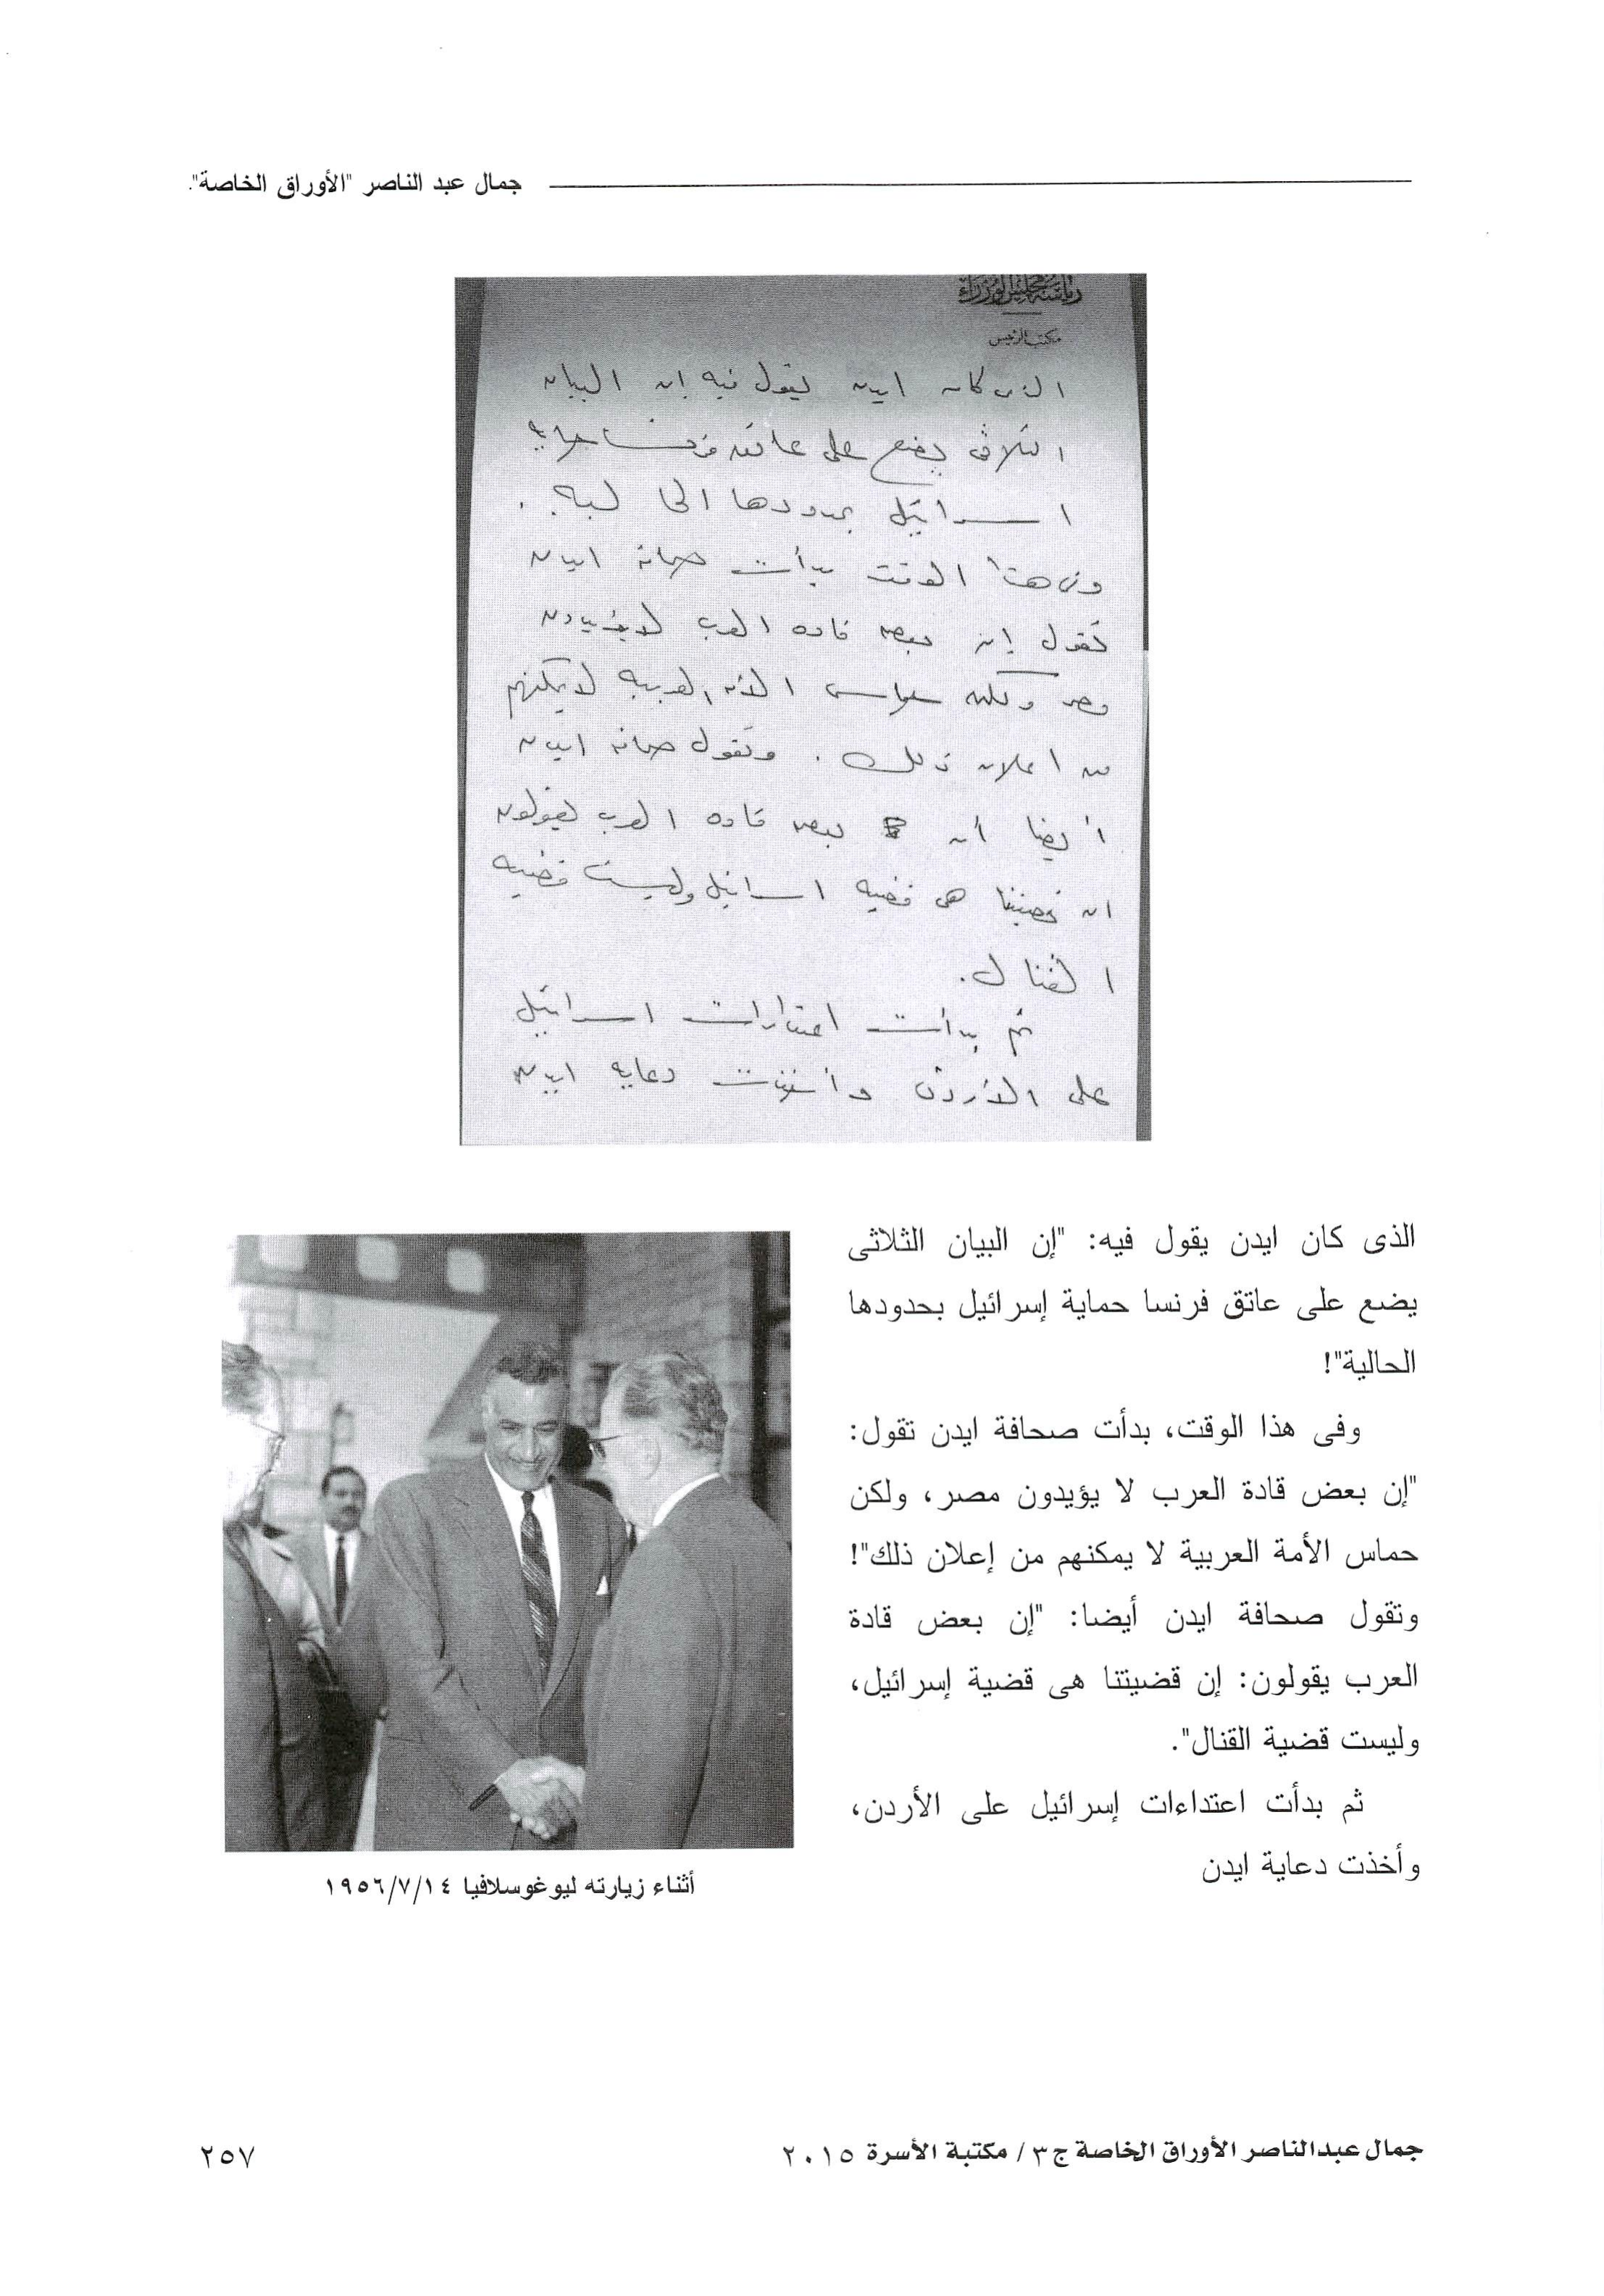 جمال عبد الناصر "الأوراق الخاصة".
رئاسة مجلس الوزراء
مكتب الرئيس
الذى كان ايدن يقول فيه ان البيان
الثلاثى يضع على عاتق فرنسا حماية
اسرائيل بحدودها الحاليه .
وفى هذا الوقت بدأت صحافة ايدن
تقول إن بعض قاده العرب لا يؤيدون
مصر ولكن حماس الأمه العربيه لا يمكنهم
من اعلان ذلك . وتقول صحافة ايدن
أيضا أن بعض قاده العرب يقولون
ان قضيتنا هى قضيه اسرائيل وليست قضيه
القنال .
ثم بدأت اعتداءات اسرائيل
على الأردن وأخذت دعايه ايدن
الذى كان ايدن يقول فيه: "إن البيان الثلاثى
يضع على عاتق فرنسا حماية إسرائيل بحدودها
الحالية"!
وفى هذا الوقت، بدأت صحافة ايدن تقول:
"إن بعض قادة العرب لا يؤيدون مصر، ولكن
حماس الأمة العربية لا يمكنهم من إعلان ذلك"!
وتقول صحافة ايدن أيضا: "إن بعض قادة
العرب يقولون: إن قضيتنا هى قضية إسرائيل،
وليست قضية القنال".
ثم بدأت اعتداءات إسرائيل على الأردن،
وأخذت دعاية ايدن
أثناء زيارته ليوغوسلافيا ١٩٥٦/٧/١٤
جمال عبدالناصر الأوراق الخاصة ج٣/ مكتبة الأسرة ٢٠١٥
٢٥٧